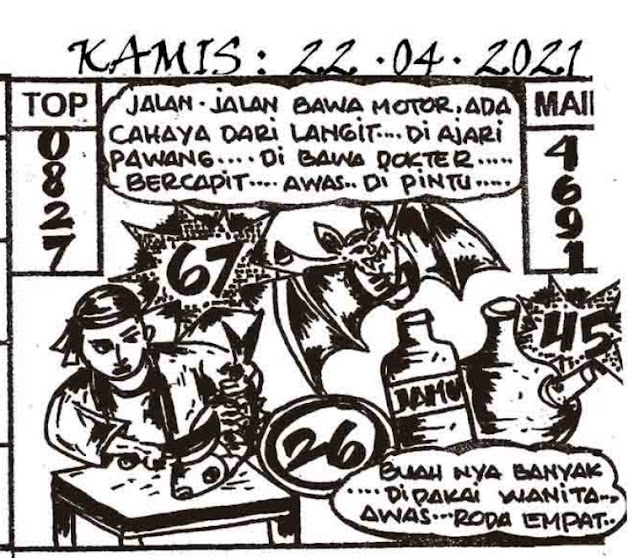 KAMIS : 22 . 04 . 2021
TOP
0
8
2
7
JALAN - JALAN BAWA MOTOR, ADA
CAHAYA DARI LANGIT.... DI AJARI
PAWANG .... DI BAWA DOKTER .....
BERCAPIT .... AWAS.. DI PINTU .....
MAI
4
6
9
1
67
45
JAMU
26
BUAH NYA BANYAK
.... DIPAKAI WANITA...
AWAS...RODA EMPAT..